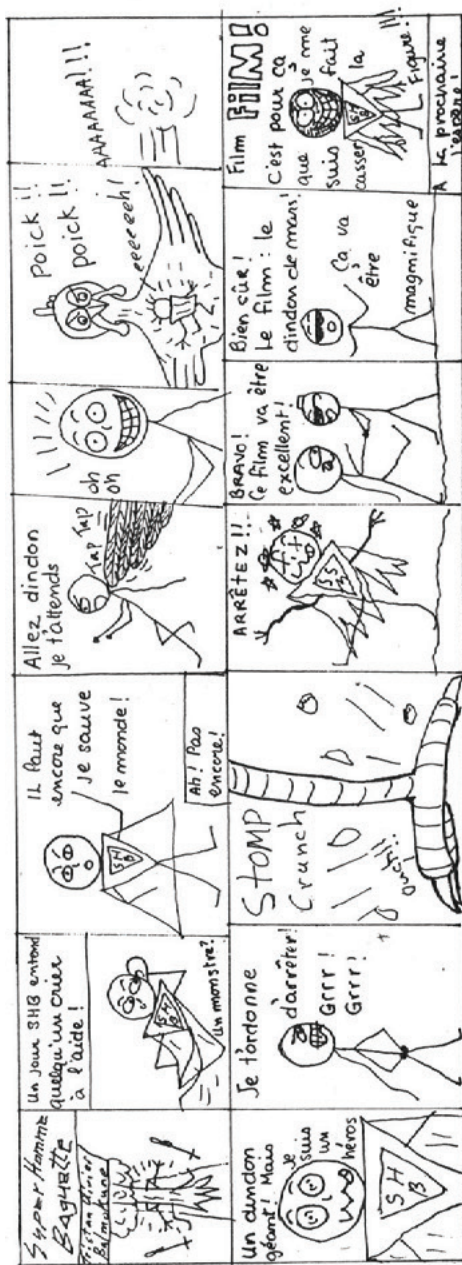 Super Homme
BAGUETTE
Un jour SHB entend
quelqu'un crier
à l'aide!
SHB
Un monstre?
IL faut
encore que
je sauve
le monde!
SHB
Ah! Pas
encore!
Allez dindon
je t'attends
TAP TAP
oh
oh
Poick!!
poick!!
eeeeeeh!
AAAAAAAA!!!
Un dindon
géant! Mais
je
suis
un
héros
SHB
Je t'ordonne
d'arrêter!
Grrr!
Grrr!
STOMP
Crunch
Ouch!!!
ARRÊTEZ!!
BRAVO!
Ce film va être
excellent!
Bien sûr!
Le film: le
dindon de mars!
Ça va
être
magnifique
Film FiLM!
C'est pour ça
que je me
suis fait
casser la
Figure!!!
SHB
A la prochaine
j'espère!